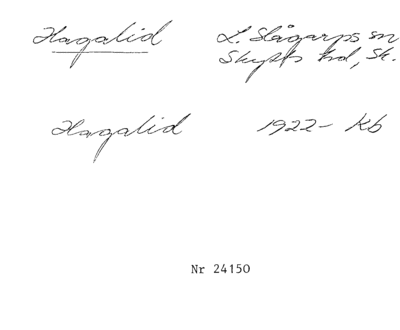 Hagalid L. Slågarps sn
Skytts hd, Sk.
Hagalid 1922- Kb
Nr 24150